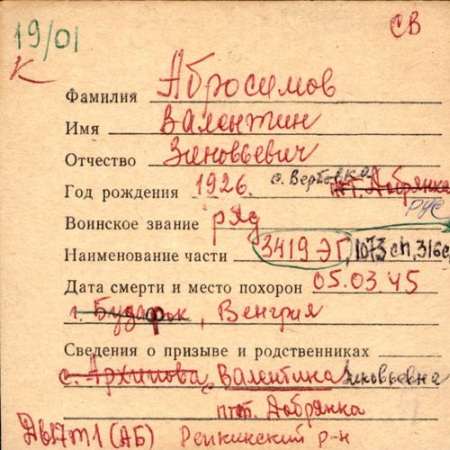 19/01 СВ
К
Фамилия Абросимов
Имя Валентин
Отчество Зиновьевич
Год рождения 1926. с. Вербовка пгт. Добрянка
РУС
Воинское звание ряд
Наименование части 3419 ЭГ, 1073 сп, 316с
Дата смерти и место похорон 05.03.45
г. , Венгрия
Сведения о призыве и родственниках
с. Архипова Валентина Зиновьевна
пгт. Добрянка
(АБ) Репкинский р-н